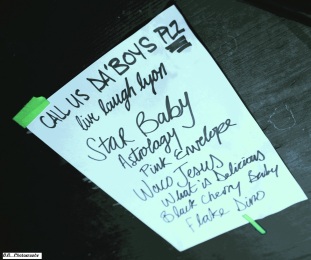 CALL US DA'BOYS PLZ
live laugh lyon
Star Baby
Astrology
Pink Envelope
Waco Jesus
What is Delicious
Black Cherry Baby
Flake Dino